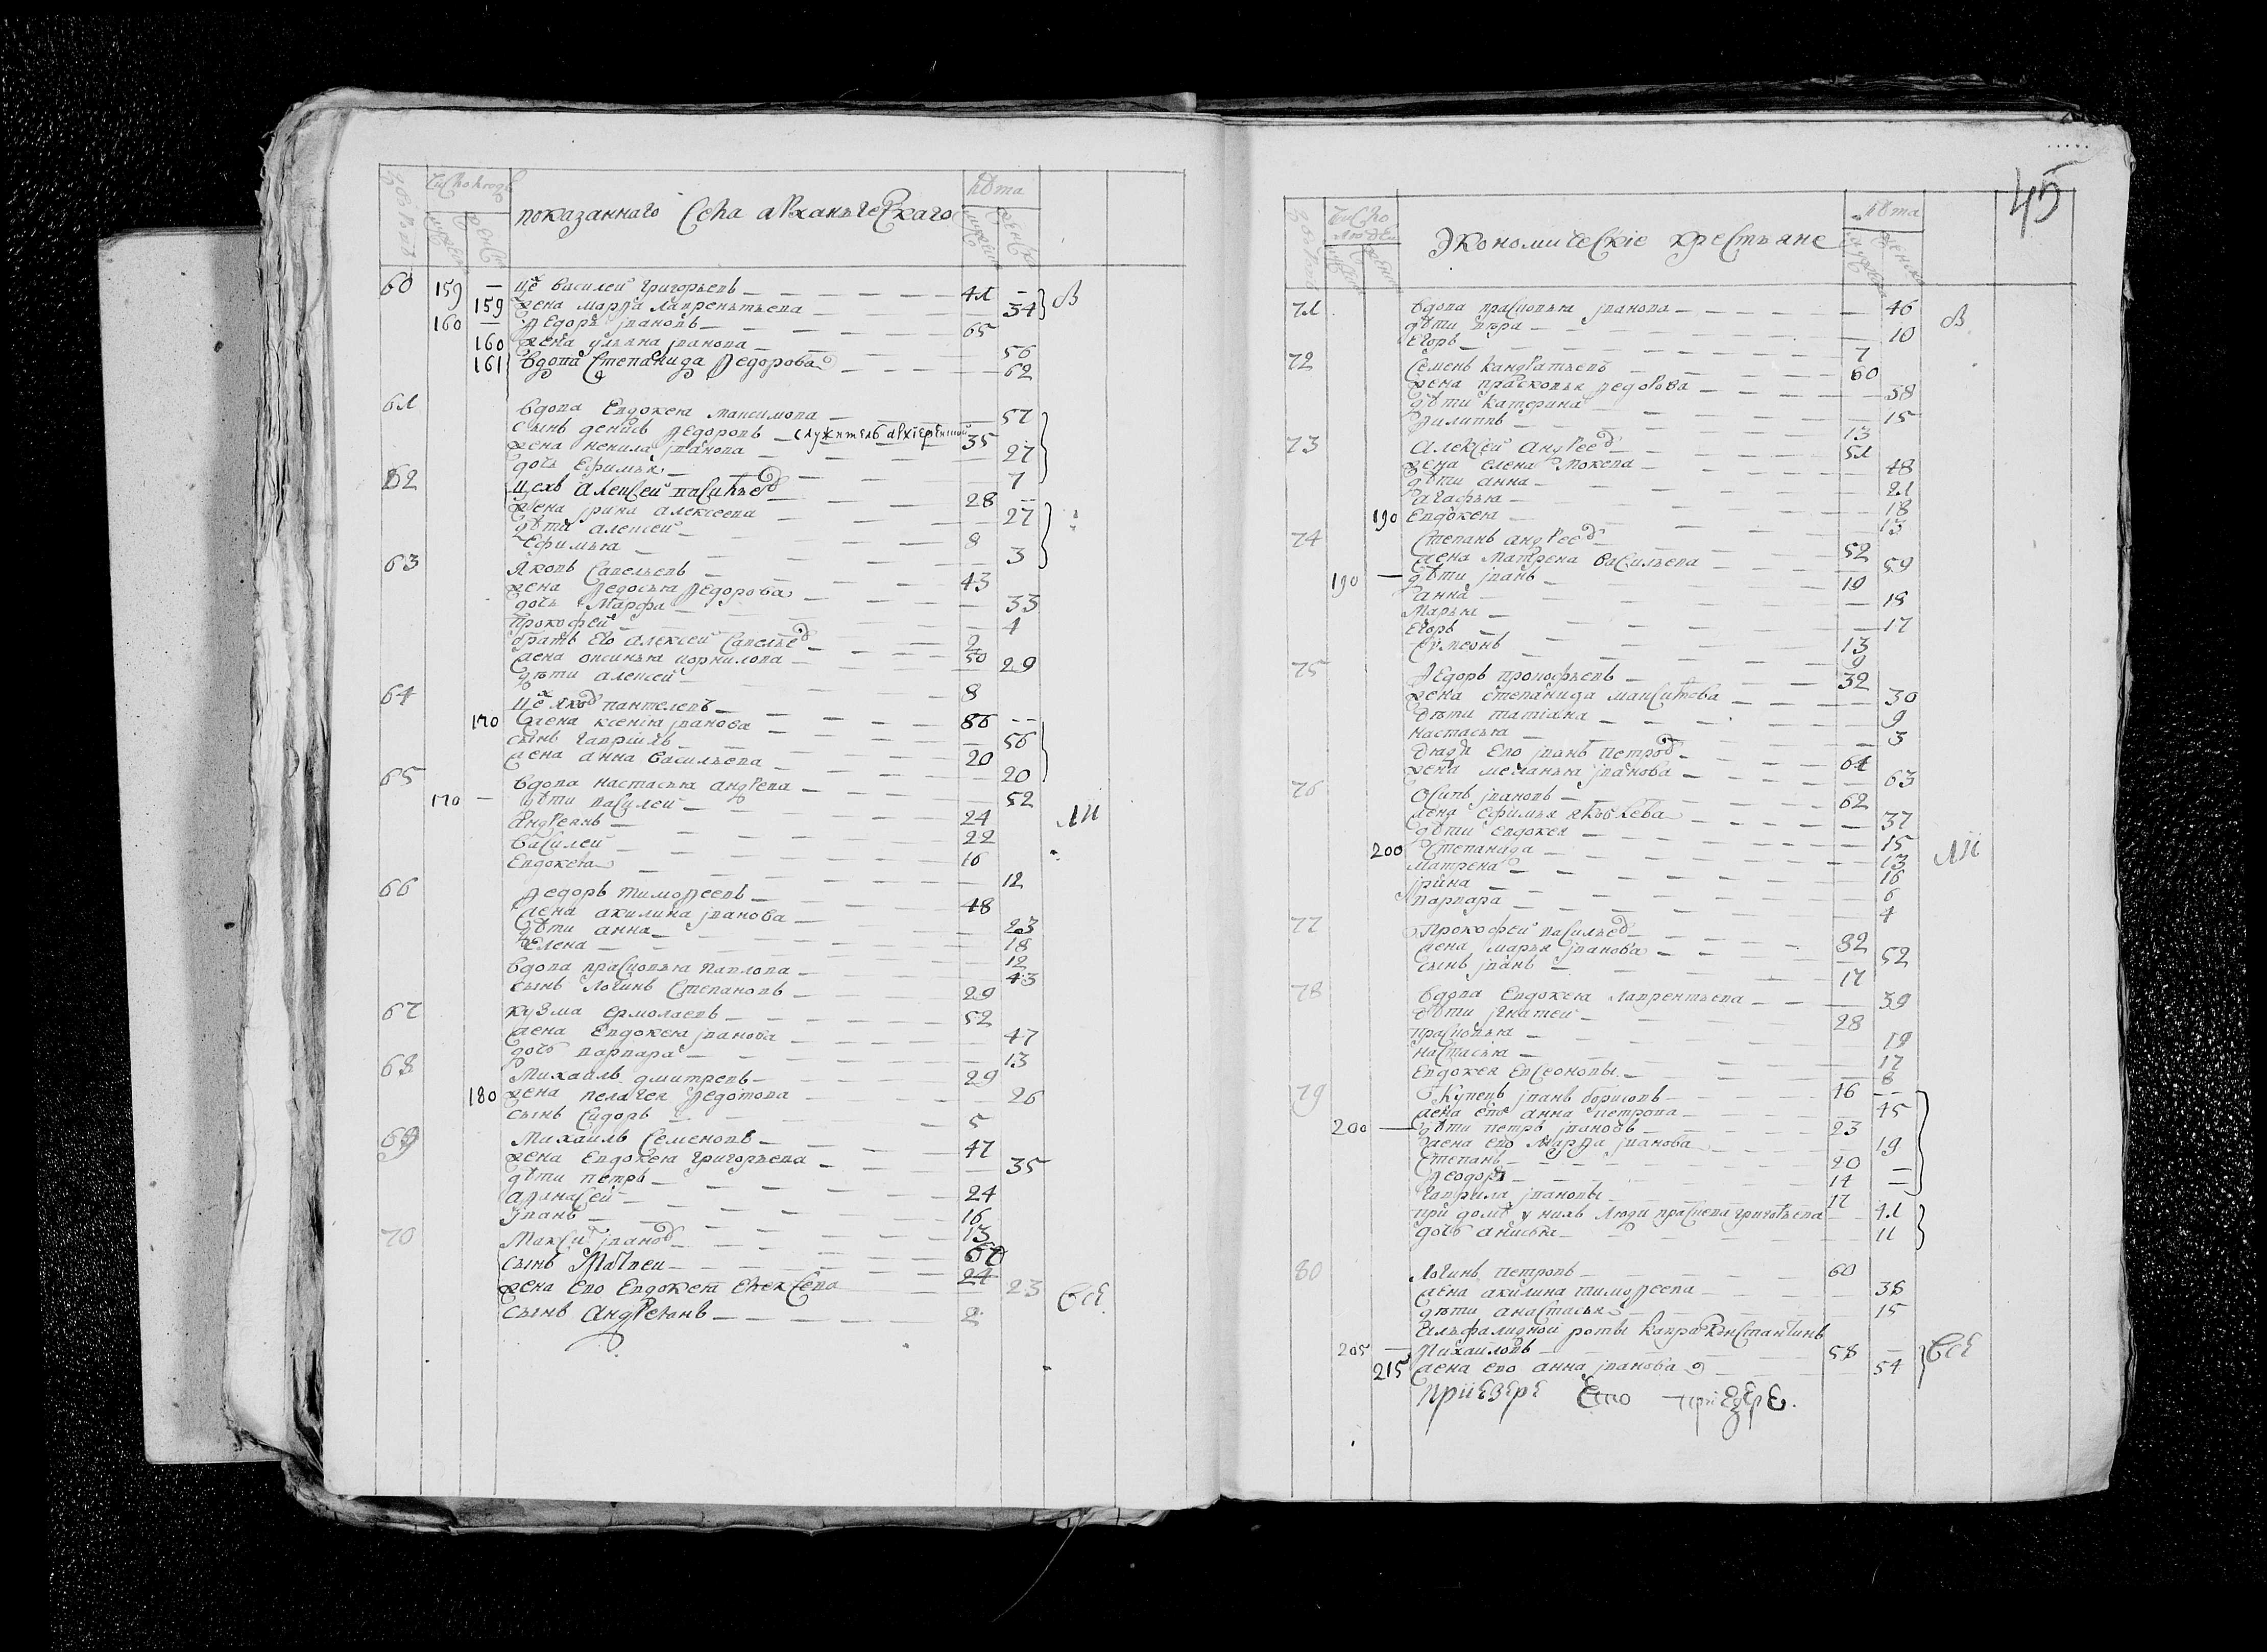 показаннаго Села архангелскаго
лѣта
60 159 — це василеи григорьевъ 41 —
159 жена марѳа лаврентьева 34
160 — ѳедоръ ивановъ 65
160 жена ульяна иванова 56
161 вдова степанида ѳедорова 62
61 вдова евдокея максимова 57
сынъ денисъ ѳедоровъ служитель 35
жена ненила иванова 27
дочь ефимья 7
62 цехъ алексеи васильев 28 —
жена ирина алексеева 27
дѣти алексеи 8
ефимья 3
63 яковъ савельевъ 43
жена ѳедосья ѳедорова 33
дочь марфа 4
прокофеи 2
братъ его алексеи савельев 50
жена оксинья корнилова 29
дѣти алексеи 8
64 це яков пантелевъ 86 —
170 жена ксения иванова 56
сынъ гаврiилъ 20
жена анна васильева 20
65 вдова настасья андрева 52
170 — дѣти василеи 24
андреянъ 22
василеи 16
евдокея 12
66 ѳедоръ тимоѳеевъ 48
жена акилина иванова
дѣти анна 23
елена 18
вдова прасковья павлова 12
сынъ логинъ степановъ 29 43
67 кузма ермолаевъ 52
жена евдокея иванова 47
дочь варвара 13
68 михаилъ дмитревъ 29
180 жена пелагея ѳедотова 26
сынъ сидоръ 5
69 михаилъ семеновъ 47
жена евдокея григорьева 35
дѣти петръ 24
аѳанасеи 16
иванъ 13
70 максим иванов
сынъ матвеи 24
жена ево евдокея алексева 23
сынъ андреянъ 2
все
45
экономическiе крестьяне
число людей
лѣта
71 вдова прасковья иванова 46
дѣти вѣра 10
егоръ 7
72 семенъ кандратьевъ 60
жена прасковья ѳедорова 38
дѣти катерина 15
ѳилипъ 13
73 алексеи андреев 51
жена елена мокева 48
дѣти анна 21
агафья 18
190 евдокея 13
74 степанъ андреев 52
жена матрена васильева 59
190 — дѣти иванъ 19
анна 18
марья 17
егоръ 13
симеонъ 9
75 ѳедоръ прокофьевъ 32
жена степанида максимова 30
дѣти татiана 9
настасья 3
дядя ево иванъ петров 64
жена меланья иванова 63
76 осипъ ивановъ 62
жена ефимья яковлева 37
дѣти евдокея 15
200 степанида 13
матрена 10
ирина 6
варвара 4
77 прокофеи васильев 32
жена марья иванова 52
сынъ иванъ 17
78 вдова евдокея лаврентьева 39
дѣти игнатеи 28
прасковья 19
настасья 17
евдокея 8
79 купецъ иванъ борисовъ 46 —
жена ево анна петрова 45
200 — дѣти петръ ивановъ 23
жена ево марѳа иванова 19
степанъ 20 —
ѳеодоръ 14 —
гаврила ивановы 12
при доме у нихъ люди григорьева 41
дочь анисья 11
80 логинъ петровъ 60
жена акилина тимоѳеева 38
дѣти анастасья 15
инвалидной роты капра константинъ
205 — михаиловъ 58 —
215 жена ево анна иванова 54
все